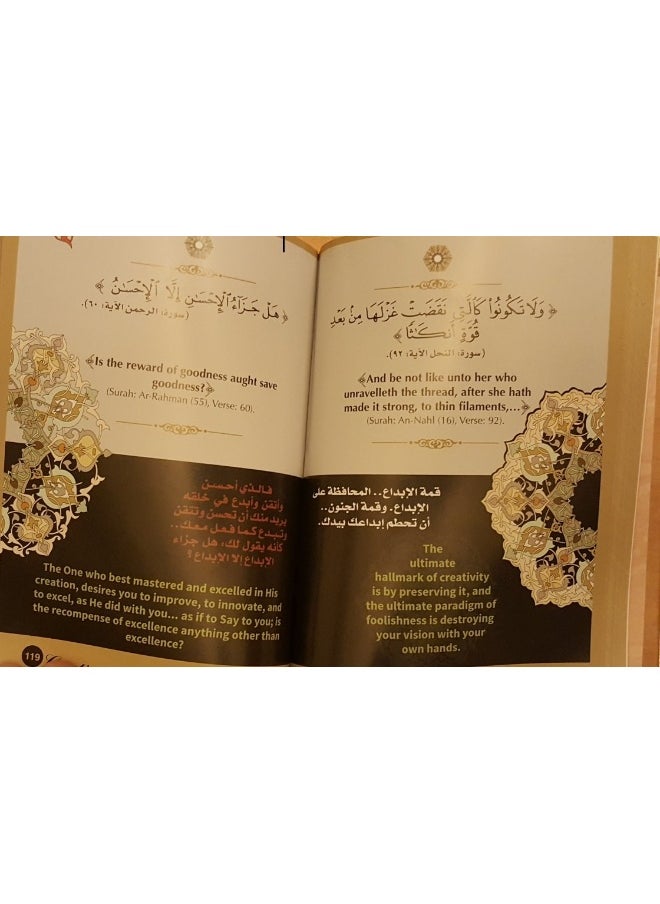 ﴿ هَلْ جَزَآءُ ٱلْإِحْسَٰنِ إِلَّا ٱلْإِحْسَٰنُ ﴾
(سورة: الرحمن الآية: ٦٠).
﴿Is the reward of goodness aught save
goodness?﴾
(Surah: Ar-Rahman (55), Verse: 60).
فالذي أحسن
وأتقن وأبدع في خلقه
يريد منك أن تحسن وتتقن
وتبدع كما فعل معك..
كأنه يقول لك، هل جزاء
الإبداع إلا الإبداع ؟
The One who best mastered and excelled in His
creation, desires you to improve, to innovate, and
to excel, as He did with you... as if to Say to you; is
the recompense of excellence anything other than
excellence?
119
﴿ وَلَا تَكُونُوا۟ كَٱلَّتِى نَقَضَتْ غَزْلَهَا مِنۢ بَعْدِ
قُوَّةٍ أَنكَٰثًا ﴾
(سورة: النحل الآية: ٩٢).
﴿And be not like unto her who
unravelleth the thread, after she hath
made it strong, to thin filaments,...﴾
(Surah: An-Nahl (16), Verse: 92).
قمة الإبداع.. المحافظة على
الإبداع. وقمة الجنون..
أن تحطم إبداعك بيدك.
The
ultimate
hallmark of creativity
is by preserving it, and
the ultimate paradigm of
foolishness is destroying
your vision with your
own hands.